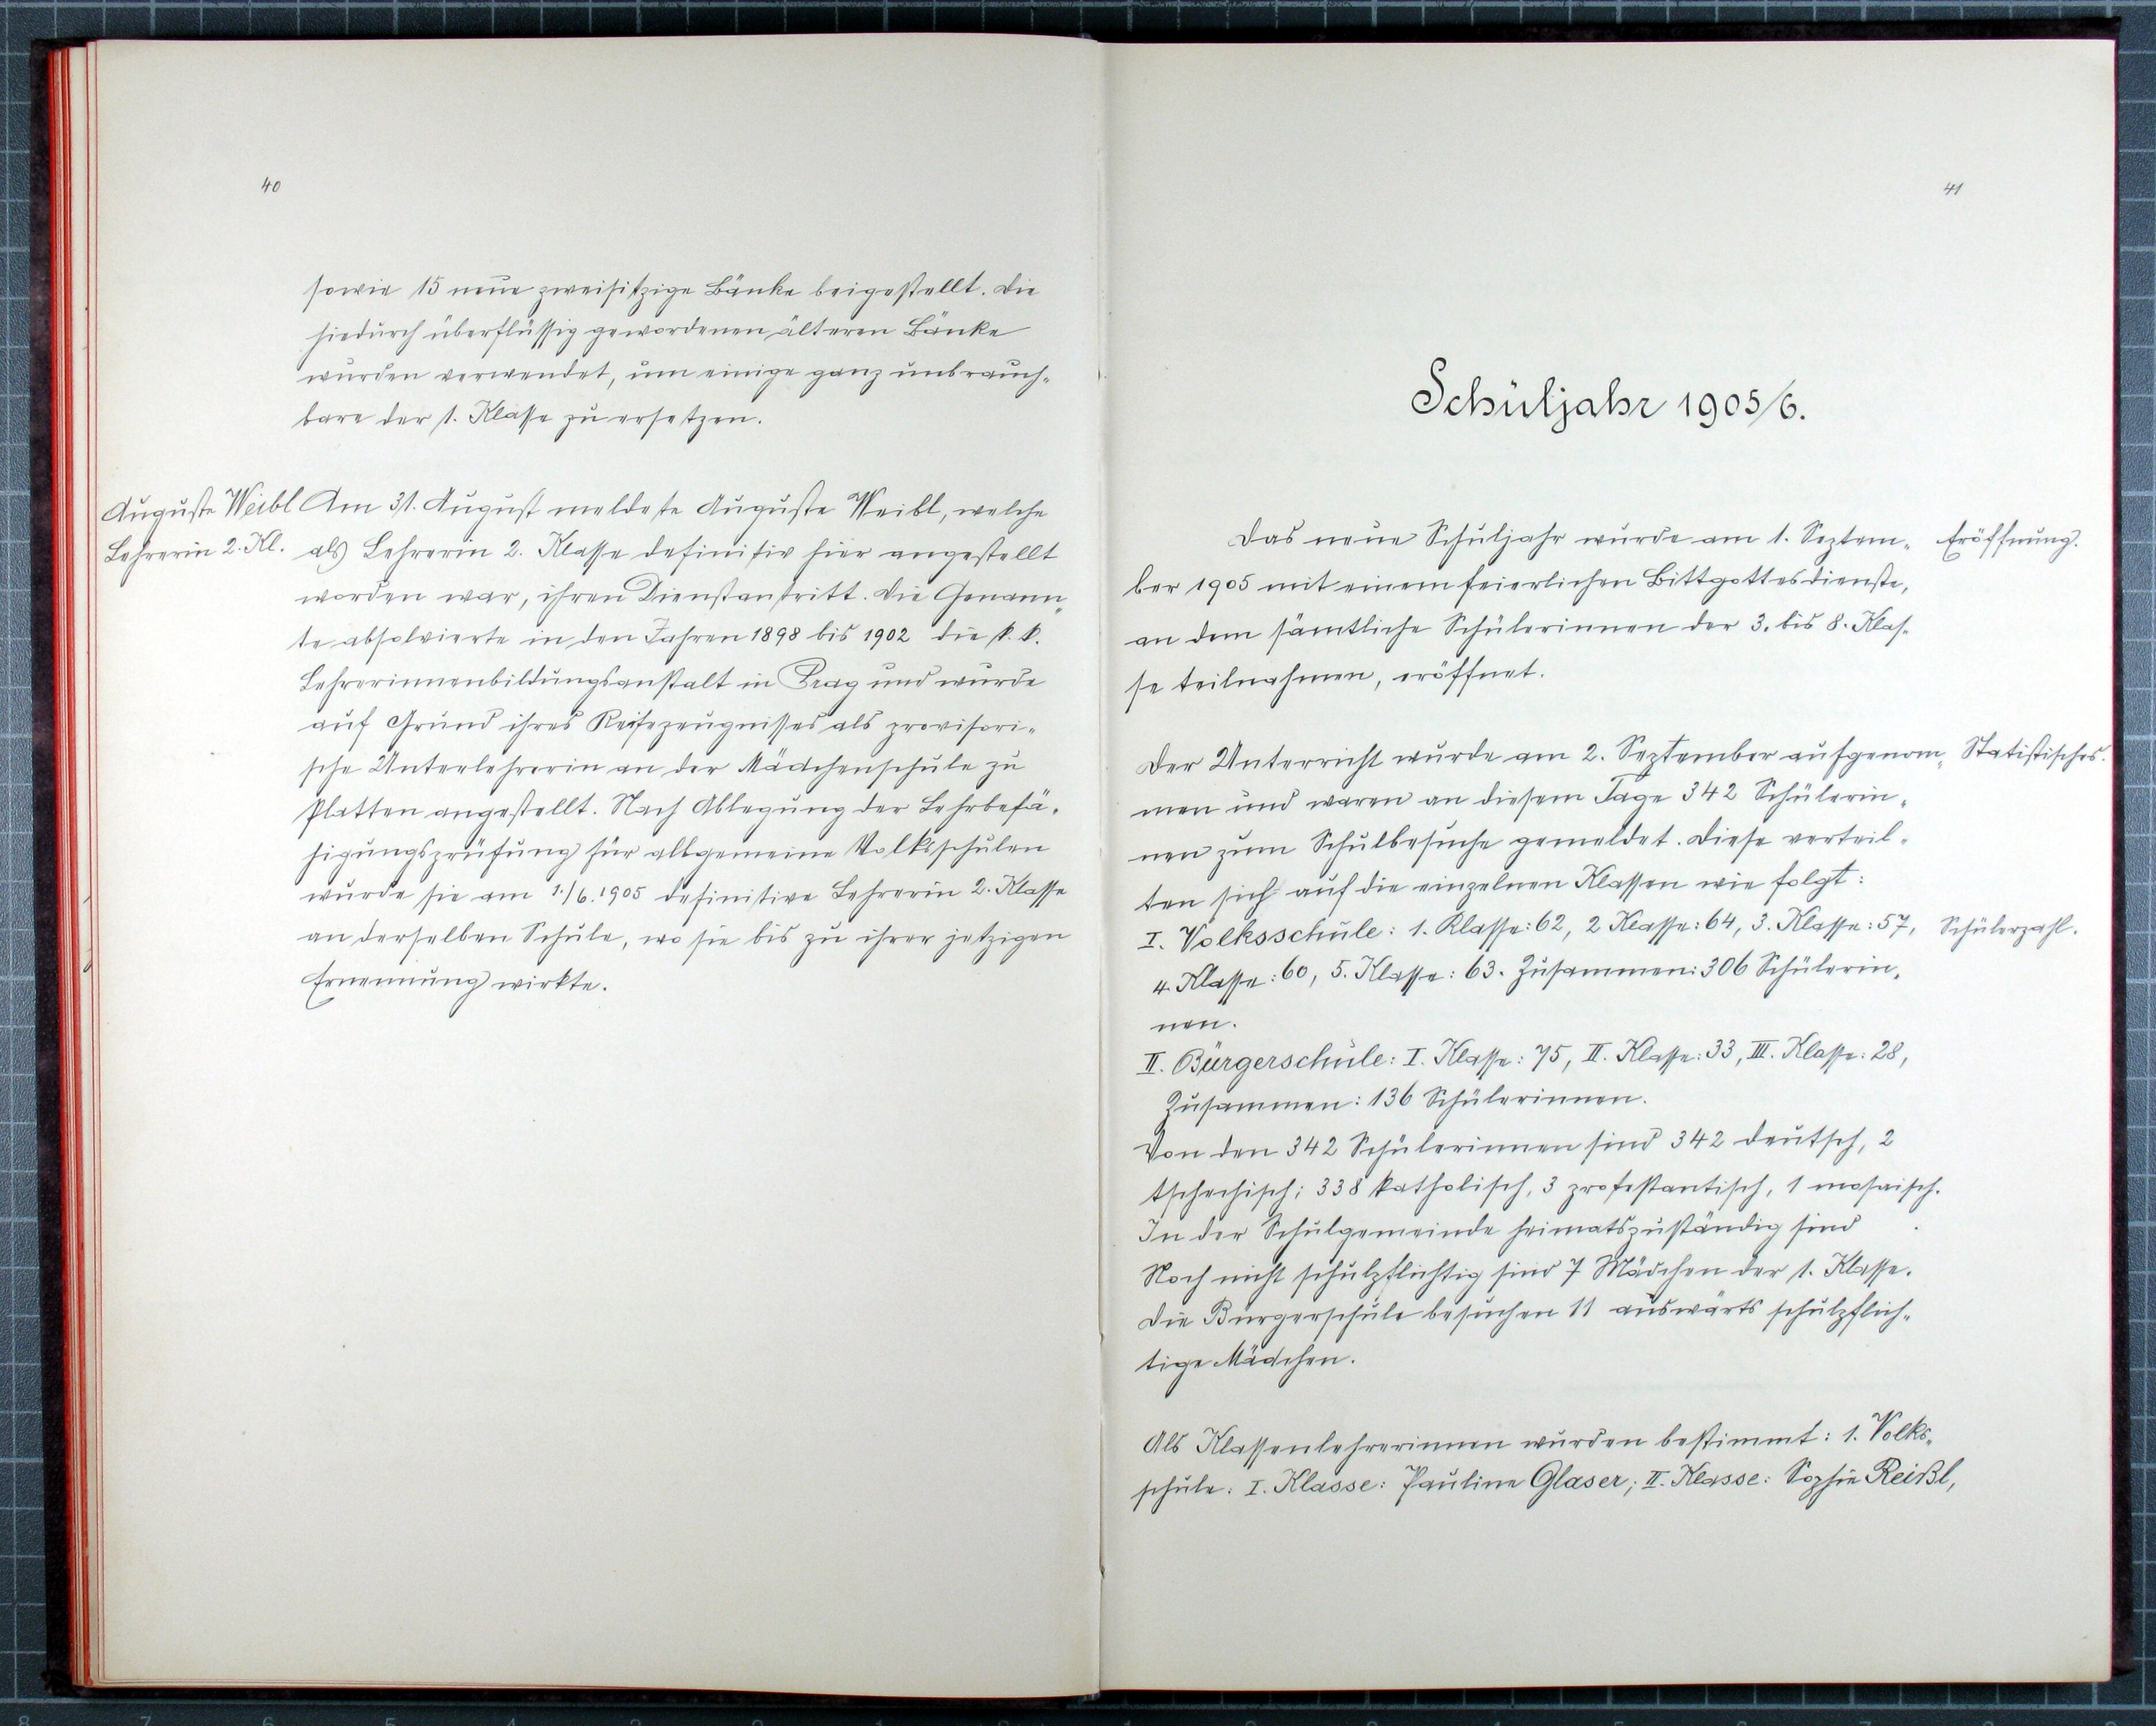 40
sowie 15 neue zweisitzige Bänke beigestellt. Die
hiedurch überflüssig gewordenen älteren Bänke
wurden verwendet, um einige ganz unbrauch-
bare der 1. Klasse zu ersetzen.
Auguste Weibl
Lehrerin 2. Kl.
Am 31. August meldete Auguste Weibl, welche
als Lehrerin 2. Klasse definitiv hier angestellt
worden war, ihren Dienstantritt. Die Genann-
te absolvierte in den Jahren 1898 bis 1902 die k. k.
Lehrerinnenbildungsanstalt in Prag und wurde
auf Grund ihres Reifezeugnisses als provisori-
sche Unterlehrerin an der Mädchenschule zu
Platten angestellt. Nach Ablegung der Lehrbefä-
higungsprüfung für allgemeine Volksschulen
wurde sie am 1./6. 1905 definitive Lehrerin 2. Klasse
an derselben Schule, wo sie bis zu ihrer jetzigen
Ernennung wirkte.
41
Schuljahr 1905/6.
Das neue Schuljahr wurde am 1. Septem-
Eröffnung.
ber 1905 mit einem feierlichen Bittgottesdienste,
an dem sämtliche Schülerinnen der 3. bis 8. Klas-
se teilnahmen, eröffnet.
Der Unterricht wurde am 2. September aufgenom-
Statistisches.
men und waren an diesem Tage 342 Schülerin-
nen zum Schulbesuche gemeldet. Diese verteil-
ten sich auf die einzelnen Klassen wie folgt:
I. Volksschule: 1. Klasse: 62, 2 Klasse: 64, 3. Klasse: 57,
Schülerzahl.
4. Klasse: 60, 5. Klasse: 63. Zusammen: 306 Schülerin-
nen.
II. Bürgerschule: I. Klasse: 75, II. Klasse: 33, III. Klasse: 28,
Zusammen: 136 Schülerinnen.
Von den 342 Schülerinnen sind 342 deutsch, 2
tschechisch; 338 katholisch, 3 protestantisch, 1 mosaisch.
In der Schulgemeinde heimatszuständig sind
Noch nicht schulpflichtig sind 7 Mädchen der 1. Klasse.
Die Bürgerschule besuchen 11 auswärts schulpflich-
tige Mädchen.
Als Klassenlehrerinnen wurden bestimmt: 1. Volks-
schule: I. Klasse: Pauline Glaser; II. Klasse: Sophie Reißl,